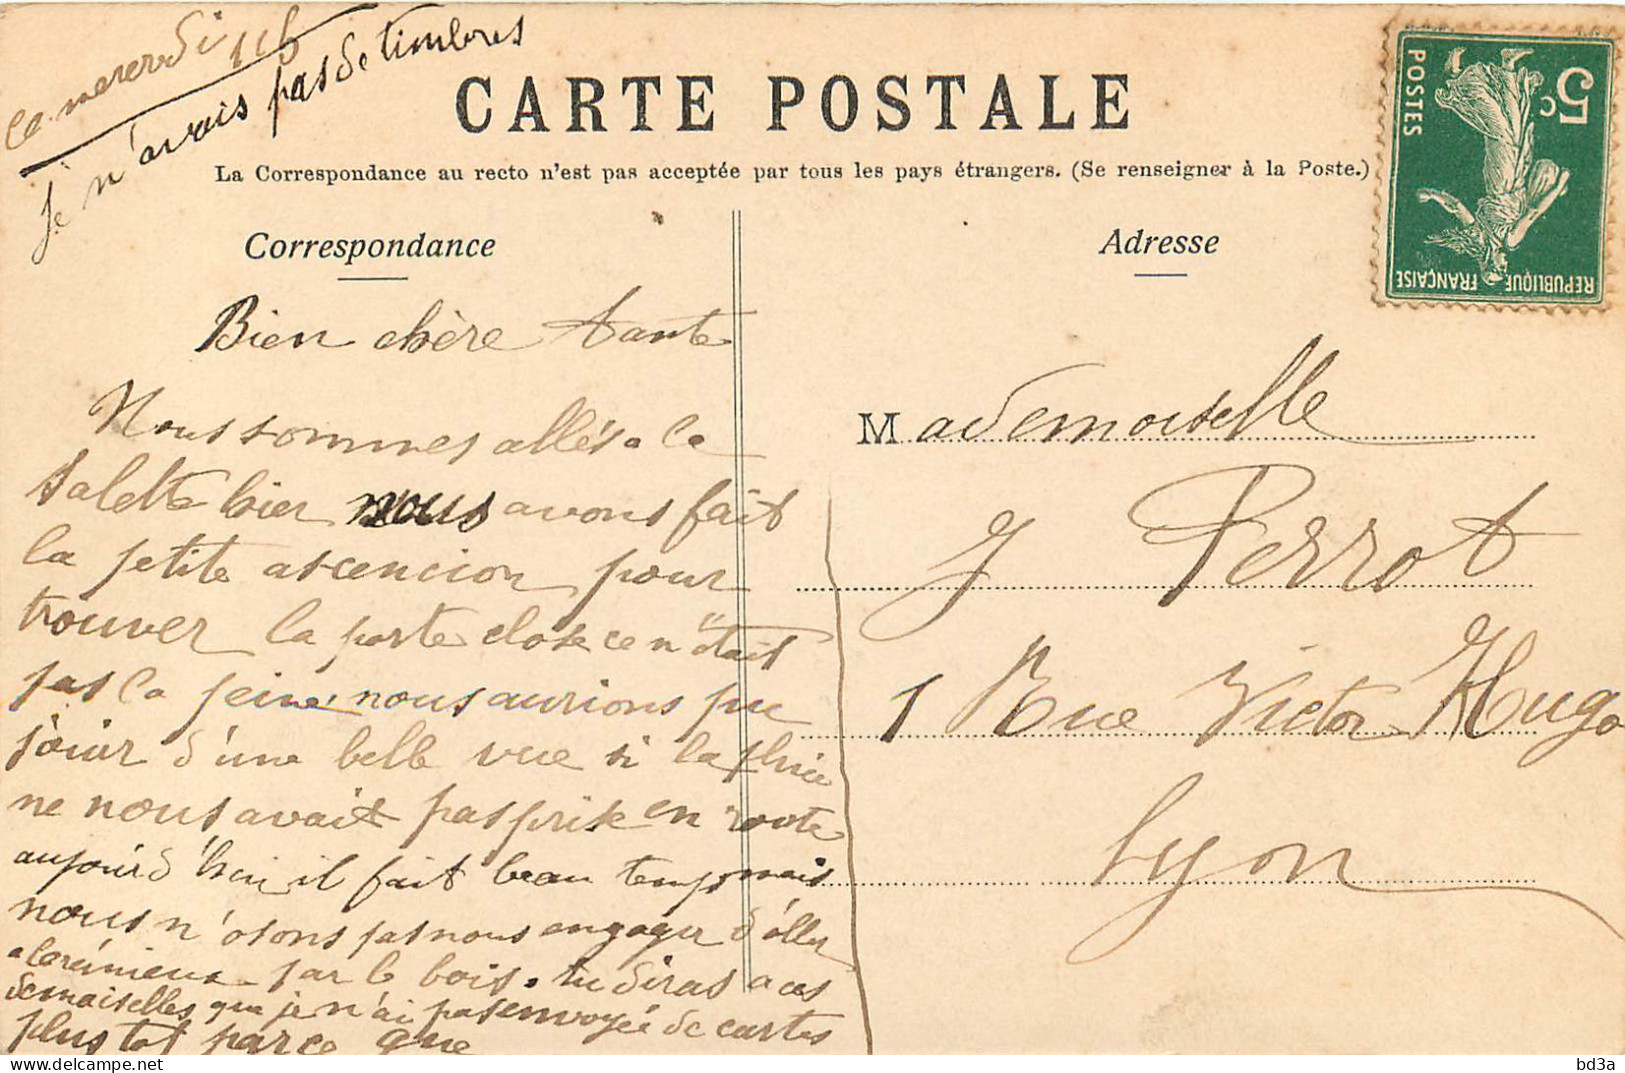 ce mercredi
je n'avais pas de timbres
CARTE POSTALE
La Correspondance au recto n'est pas acceptée par tous les pays étrangers. (Se renseigner à la Poste.)
POSTES
5c
REPUBLIQUE FRANÇAISE
Correspondance
Adresse
Bien chère tante
Nous sommes allés a la
Salette hier nous avons fait
la petite ascencion pour
trouver la porte close ce n'était
pas la peine, nous aurions pu
jouir d'une belle vue si la pluie
ne nous avait pas prise en route
aujourd'hui il fait beau temps mais
nous n'osons pas nous engager d'aller
a par le bois. tu diras a ces
demoiselles que je n'ai pas envoyée de cartes
plus tot parce que
Mademoiselle
J Perrot
1 Rue Victor Hugo
Lyon
bd3a